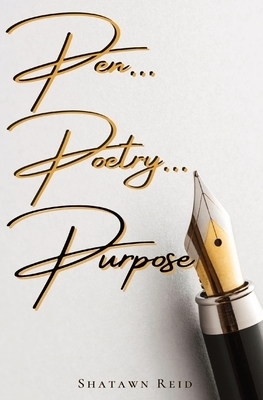 Pen...
Poetry...
Purpose
Shatawn Reid